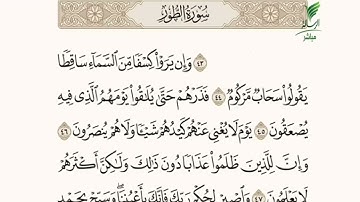 سُورَةُ الطُّورِ
مباشر
﴿٤٣﴾ وَإِن يَرَوْا۟ كِسْفًا مِّنَ ٱلسَّمَآءِ سَاقِطًا
يَقُولُوا۟ سَحَابٌ مَّرْكُومٌ ﴿٤٤﴾ فَذَرْهُمْ حَتَّىٰ يُلَٰقُوا۟ يَوْمَهُمُ ٱلَّذِى فِيهِ
يُصْعَقُونَ ﴿٤٥﴾ يَوْمَ لَا يُغْنِى عَنْهُمْ كَيْدُهُمْ شَيْـًٔا وَلَا هُمْ يُنصَرُونَ ﴿٤٦﴾
وَإِنَّ لِلَّذِينَ ظَلَمُوا۟ عَذَابًا دُونَ ذَٰلِكَ وَلَٰكِنَّ أَكْثَرَهُمْ
لَا يَعْلَمُونَ ﴿٤٧﴾ وَٱصْبِرْ لِحُكْمِ رَبِّكَ فَإِنَّكَ بِأَعْيُنِنَا ۖ وَسَبِّحْ بِحَمْدِ